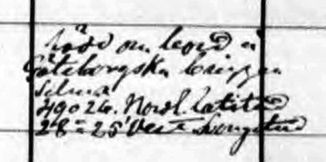 död om bord å
Göteborgska briggen
Selma
49° 26' Nordl. latitud
28° 25' Vest Longitud